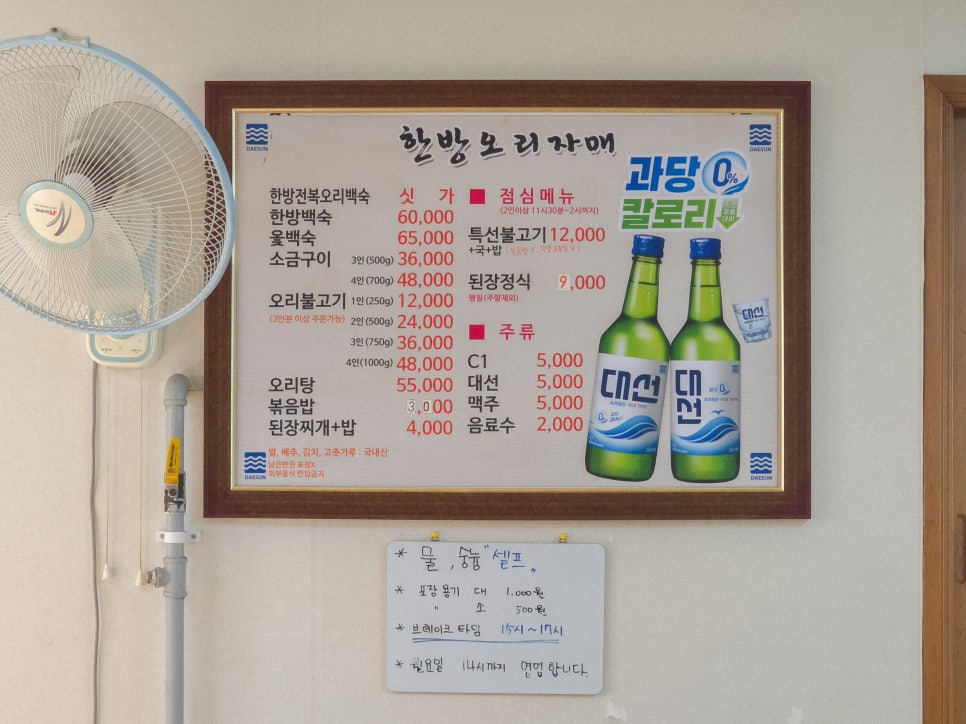 한방오리자매
DAESUN
DAESUN
한방전복오리백숙 싯 가
한방백숙 60,000
옻백숙 65,000
소금구이 3인 (500g) 36,000
4인 (700g) 48,000
오리불고기 1인 (250g) 12,000
(3인분 이상 주문가능) 2인 (500g) 24,000
3인 (750g) 36,000
4인(1000g) 48,000
오리탕 55,000
볶음밥 3,000
된장찌개+밥 4,000
쌀, 배추, 김치, 고춧가루 : 국내산
남은반찬 포장X
외부음식 반입금지
DAESUN
■ 점심메뉴
(2인이상 11시30분~2시까지)
특선불고기 12,000
+국+밥
된장정식 9,000
평일(주말제외)
■ 주류
C1 5,000
대선 5,000
맥주 5,000
음료수 2,000
과당 0%
칼로리
대선
대선
과당
대선
DAESUN
* 물, 숭늉 "셀프"
* 포장용기 대 1.000원
" 소 500원
* 브레이크 타임 15시~17시
* 월요일 14시까지 영업합니다.